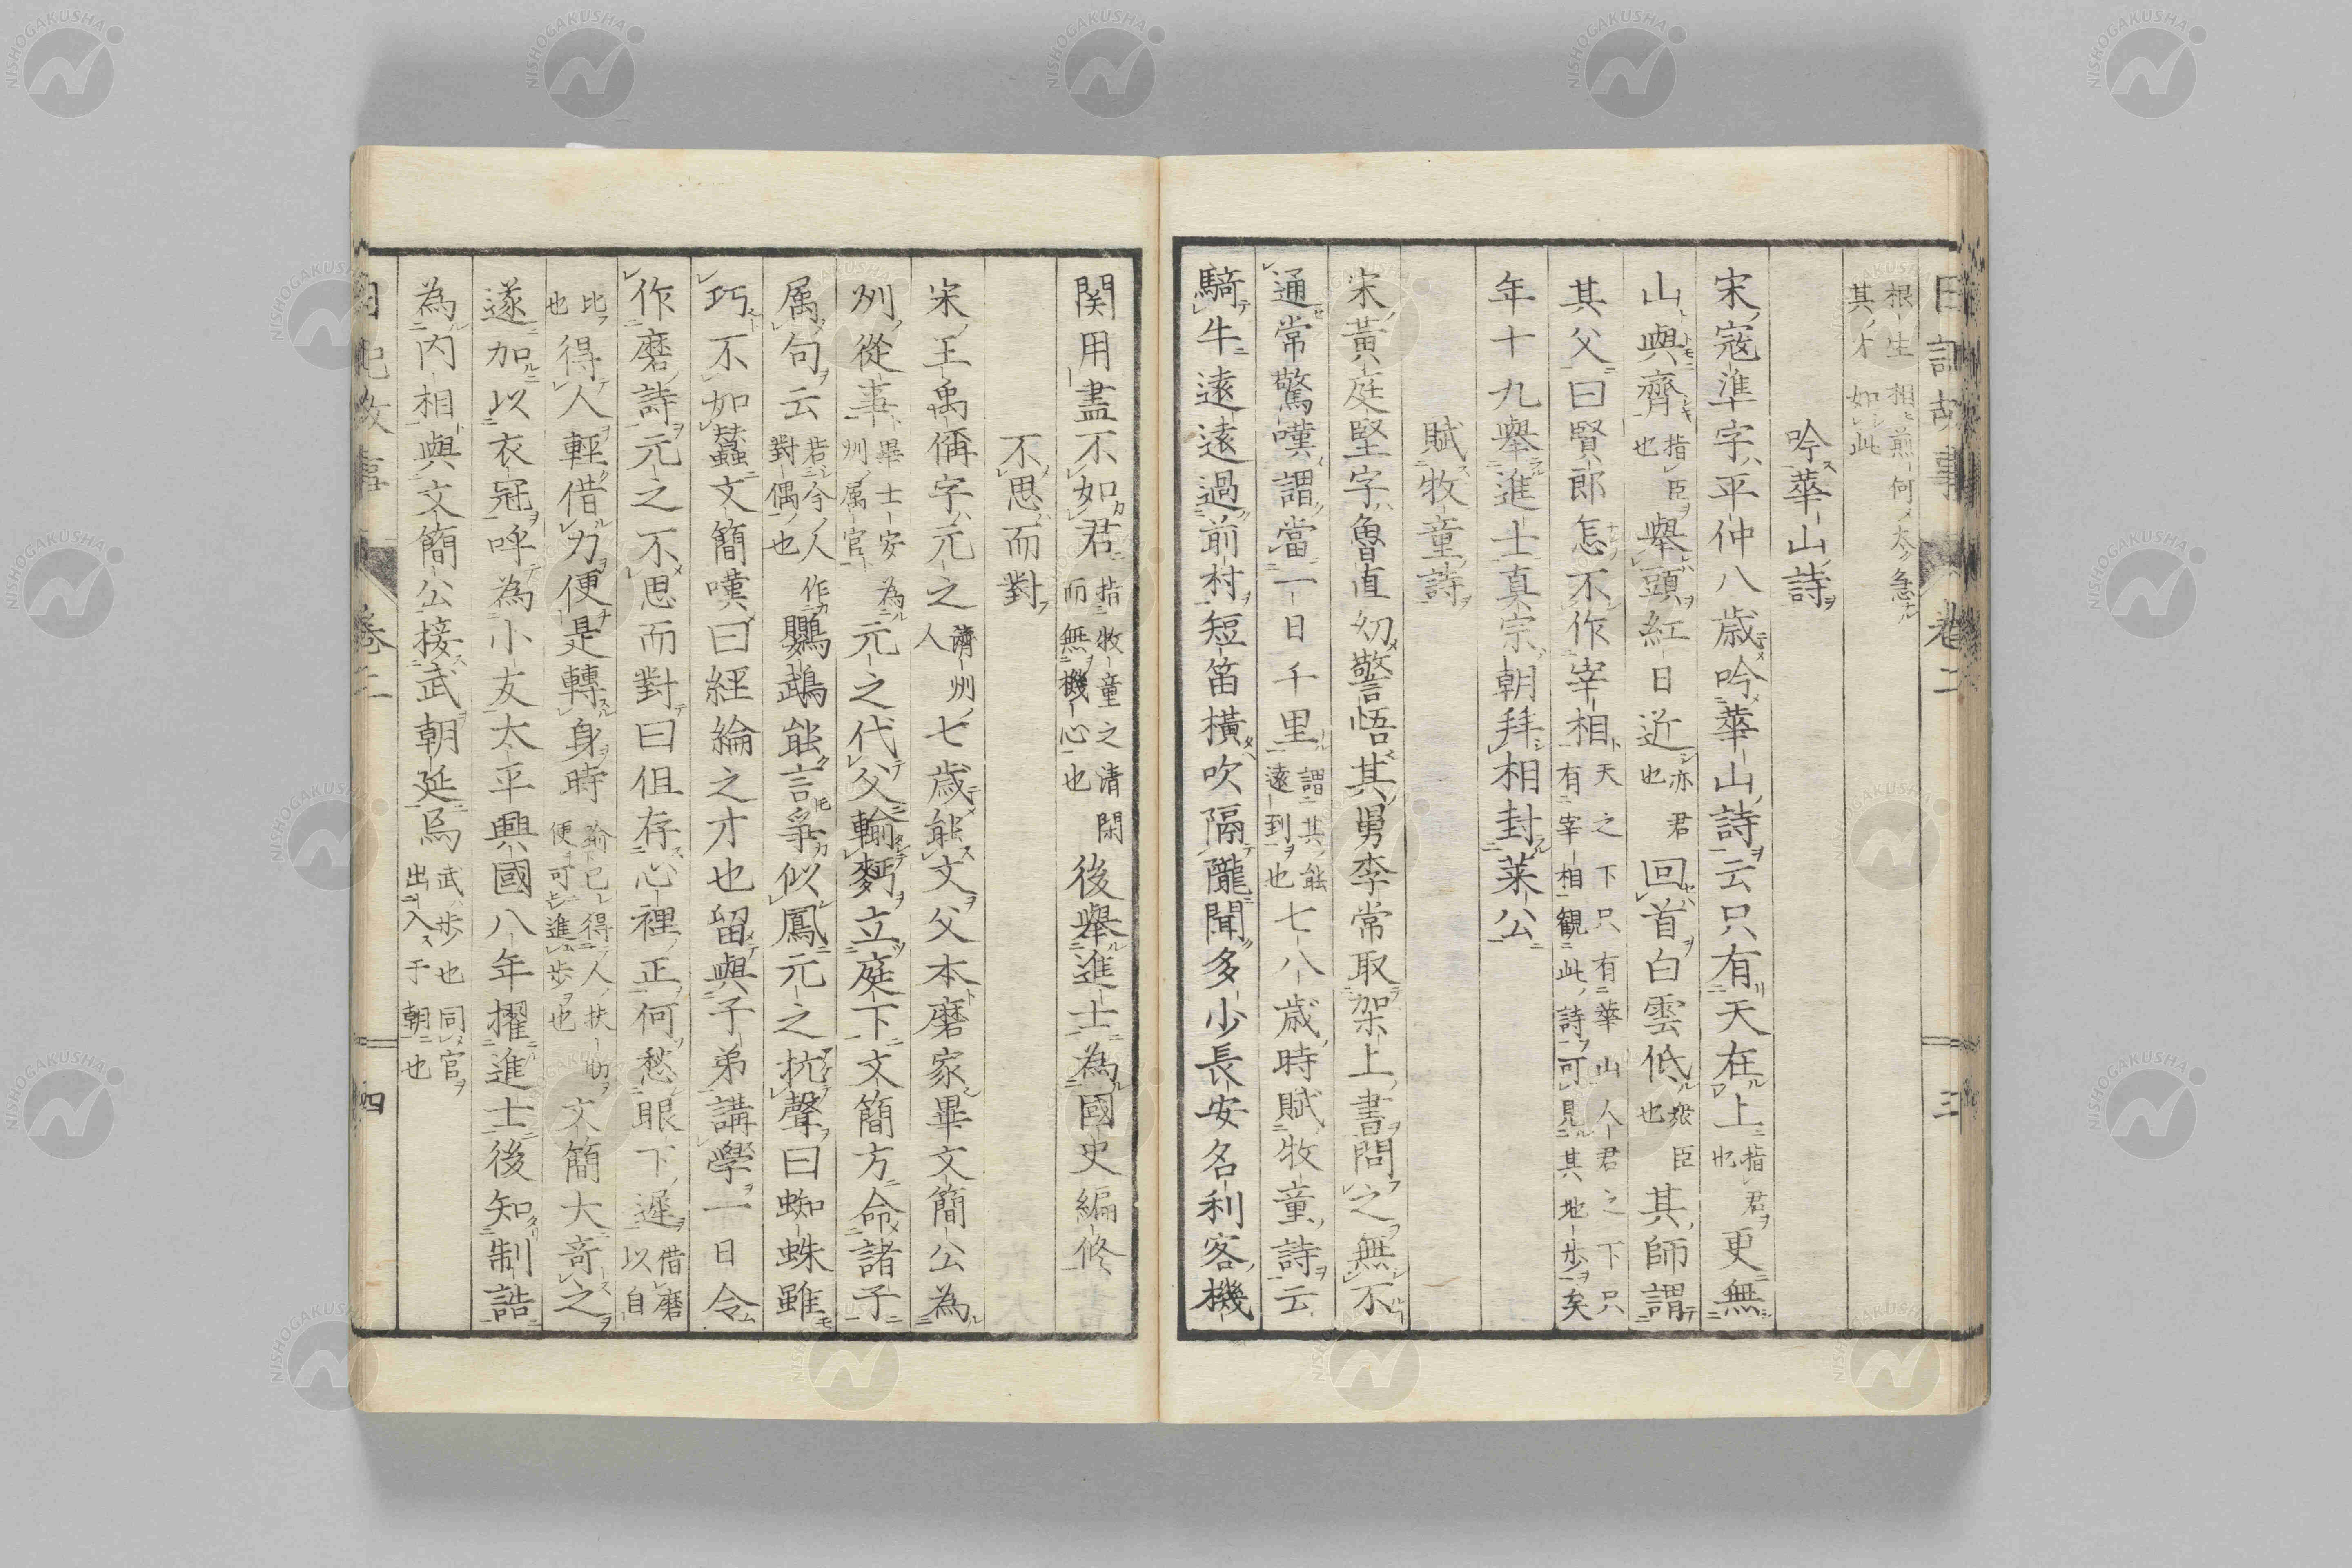 日記故事 卷二 三
根生 相煎何太急
其才如此
吟華山詩
宋寇準字平仲八歳吟華山詩云只有天在上指君也更無
山與齊指臣也舉頭紅日近亦君也回首白雲低衆臣也其師謂
其父曰賢郎怎不作宰相天之下只有華山人君之下只有宰相觀此詩可見其地步矣
年十九舉進士真宗朝拜相封莱公
賦牧童詩
宋黃庭堅字魯直幼警悟其舅李常取架上書問之無不
通常驚嘆謂當一日千里謂其能遠到也七八歳時賦牧童詩云
騎牛遠遠過前村短笛橫吹隔隴聞多少長安名利客機
関用盡不如君指牧童之清閑而無機心也後舉進士為國史編修
不思而對
宋王禹偁字元之濟州人七歳能文父本磨家畢文簡公為
州從事畢士安為州属官元之代父輸麪立庭下文簡方命諸子
属句云若今人對偶也作鸚鵡能言爭似鳳元之抗聲曰蜘蛛雖
巧不如蠶文簡嘆曰経綸之才也留與子弟講學一日令
作磨詩元之不思而對曰但存心裡正何愁眼下遲借磨以自
比也得人輕借力便是轉身時喻己得人扶助便可進歩也文簡大奇之
遂加以衣冠呼為小友太平興國八年擢進士後知制誥
為内相與文簡公接武朝延焉武歩也同官出入于朝也
日記故事 卷二 四